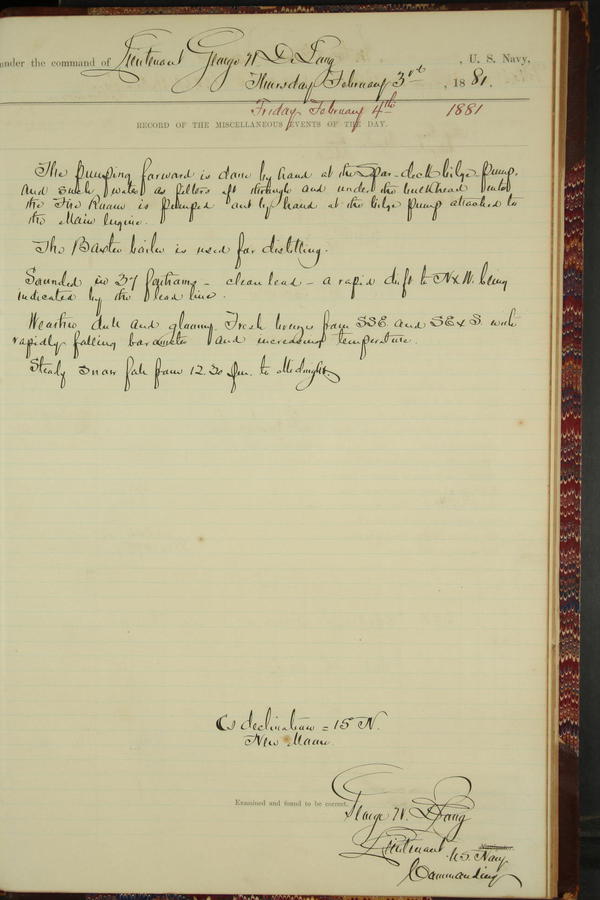 under the command of Lieutenant George W. De Long, U. S. Navy,
Thursday February 3rd, 1881.
Friday February 4th 1881
RECORD OF THE MISCELLANEOUS EVENTS OF THE DAY.
The pumping forward is done by hand at the Spar-deck bilge pump.
And such water as filters aft through and under the bulkhead into
the Fire Room is pumped out by hand at the bilge pump attached to
the Main Engine.
The Baxter boiler is used for distilling.
Sounded in 37 fathoms - clean lead - a rapid drift to N x W. being
indicated by the lead line.
Weather dull and gloomy. Fresh breezes from SSE. and SE x S. with
rapidly falling barometer and increasing temperature.
Steady snow fall from 12.30 p.m. to Midnight.
☾s declination = 15° N.
New Moon.
Examined and found to be correct.
George W. De Long
Lieutenant U.S. Navy
Navigator.
Commanding